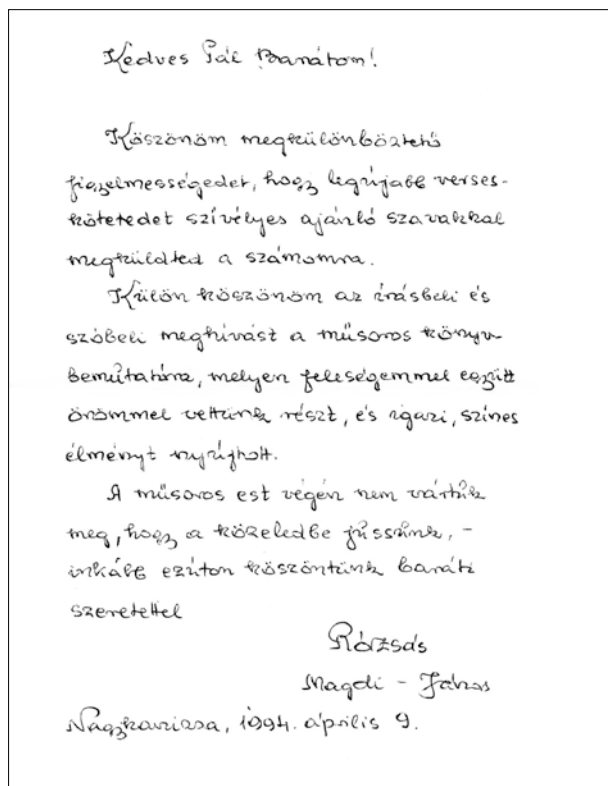 Kedves Pál Barátom!
Köszönöm megkülönböztető
figyelmességedet, hogy legújabb verses-
kötetedet szívélyes ajánló szavakkal
megküldted a számomra.
Külön köszönöm az írásbeli és
szóbeli meghívást a műsoros könyv-
bemutatóra, melyen feleségemmel együtt
örömmel vettünk részt, és igazi, színes
élményt nyújtott.
A műsoros est végén nem vártuk
meg, hogy a közeledbe jussunk, –
inkább ezúton köszöntünk baráti
szeretettel
Rózsás
Magdi – János
Nagykanizsa, 1994. április 9.